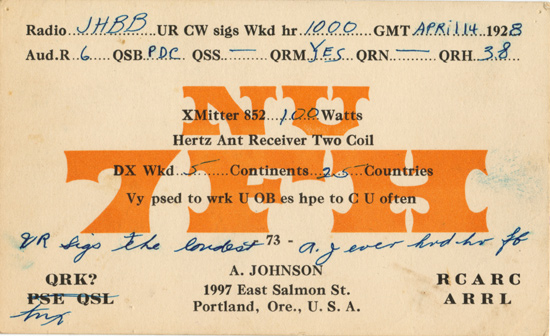 Radio JHBB UR CW sigs Wkd hr 1000 GMT APRIL 14 1928
Aud.R 6 QSB P.D.C. QSS — QRM YES QRN — QRH 38
NU
XMitter 852 100 Watts
Hertz Ant Receiver Two Coil
7FH
DX Wkd 5 Continents 25 Countries
Vy psed to wrk U OB es hpe to C U often
UR sigs the loudest 73 - a.j ever hrd hr fb
QRK?
PSE QSL
tnx
A. JOHNSON
1997 East Salmon St.
Portland, Ore., U. S. A.
RCARC
ARRL